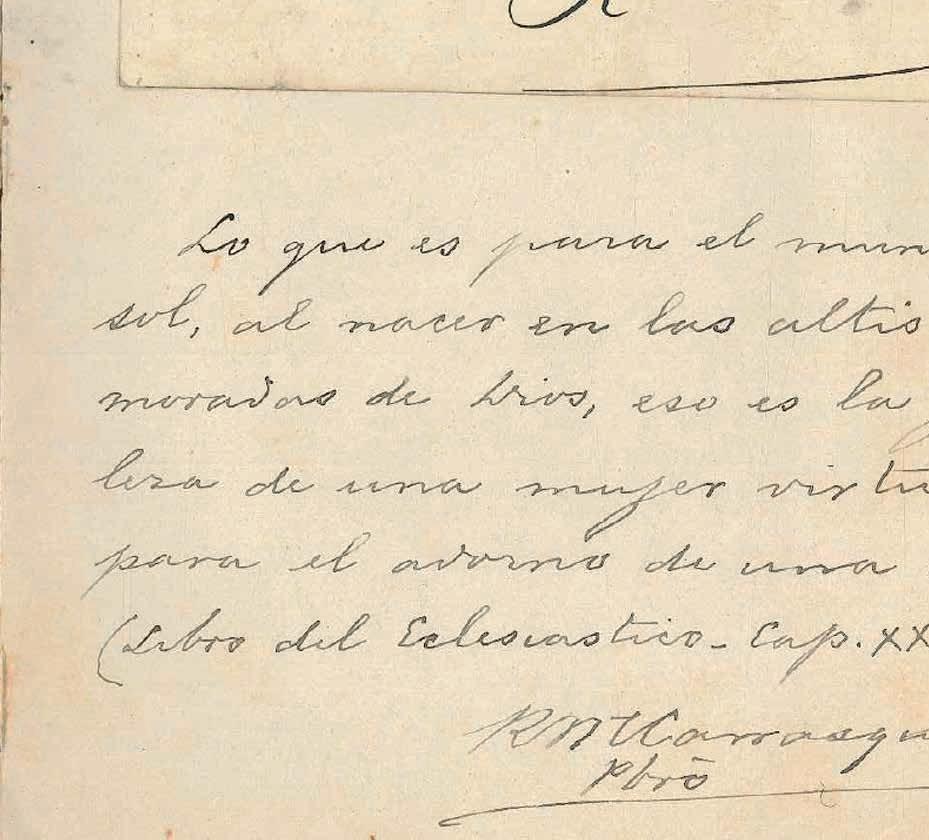 Lo que es para el mun
sol, al nacer en las altis
moradas de Dios, eso es la
leza de una mujer virtu
para el adorno de una
(Libro del Eclesiastico - Cap. XX
R M Carrasqu
Pbrō